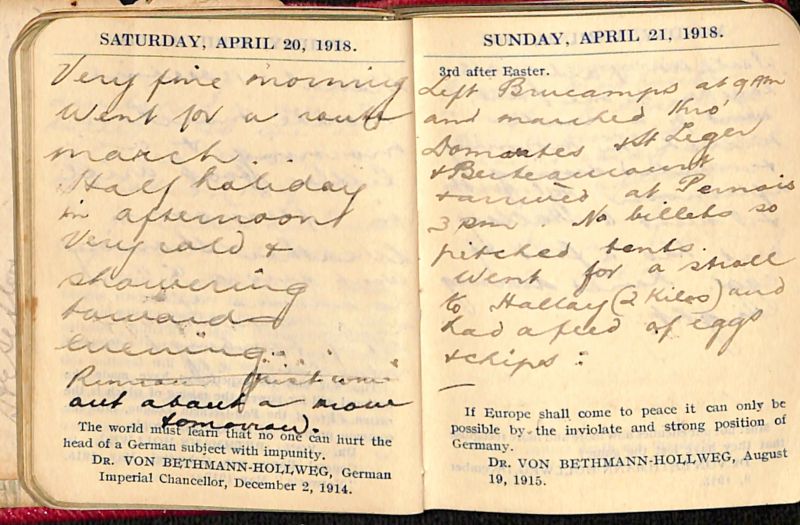 SATURDAY, APRIL 20, 1918.
Very fine morning
Went for a route
march.
Half holiday
in afternoon
Very cold &
showering
towards
evening.
out about a move
tomorrow.
The world must learn that no one can hurt the
head of a German subject with impunity.
DR. VON BETHMANN-HOLLWEG, German
Imperial Chancellor, December 2, 1914.
SUNDAY, APRIL 21, 1918.
3rd after Easter.
Left Brucamps at 9 AM
and marched thro'
Domartes & St Leger
& Berteaucourt
& arrived at Pernois
3 pm. No billets so
pitched tents.
Went for a stroll
to Halloy (2 Kilos) and
had a feed of eggs
& chips
If Europe shall come to peace it can only be
possible by the inviolate and strong position of
Germany.
DR. VON BETHMANN-HOLLWEG, August
19, 1915.